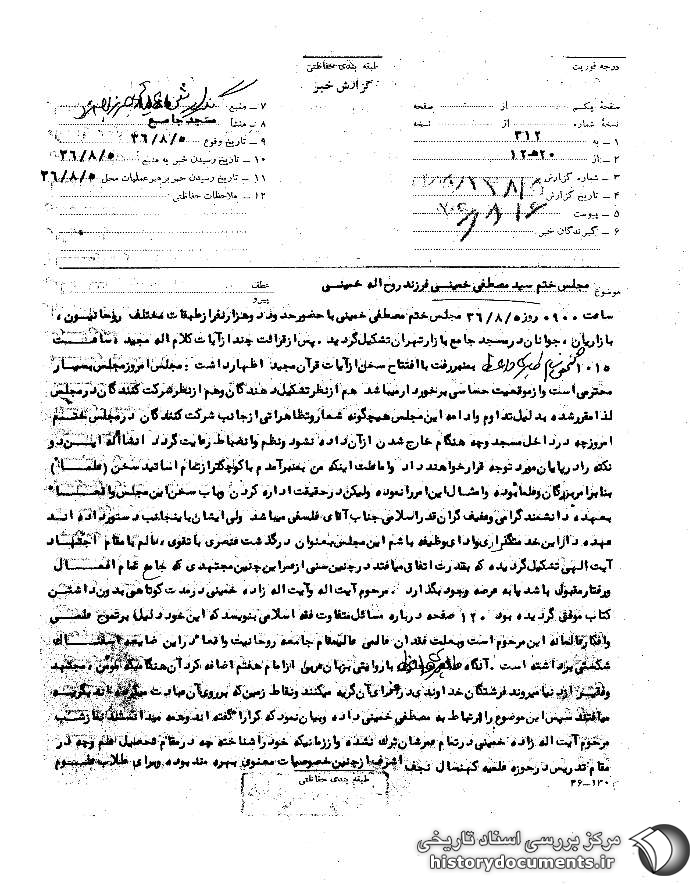 درجه فوریت
طبقه بندی حفاظتی
گزارش خبر
صفحهٔ یکم از صفحه
نسخهٔ شماره از نسخه
۱ – به ۳۱۲
۲ – از ۱۲ ه‍ ۲۰
۳ – شماره گزارش
۴ – تاریخ گزارش
۵ – پیوست
۶ – گیرندگان خبر
۷ – منبع
۸ – منشأ مسجد جامع
۹ – تاریخ وقوع ۳۶/۸/۵
۱۰ – تاریخ رسیدن خبر به منبع ۳۶/۸/۵
۱۱ – تاریخ رسیدن خبر برهبر عملیات محل ۳۶/۸/۵
۱۲ – ملاحظات حفاظتی
موضوع مجلس ختم سید مصطفی خمینی فرزند روح اله خمینی
عطف
پیرو
ساعت ۰۹۰۰ روز ۳۶/۸/۵ مجلس ختم مصطفی خمینی با حضور حدود دو هزار نفر از طبقات مختلف روحانیون ،
بازاریان ، جوانان در مسجد جامع بازار تهران تشکیل گردید . پس از قرائت چند از آیات کلام اله مجید ، ساعت
۱۰۱۵ بمنبر رفت با افتتاح سخن از آیات قرآن مجید اظهار داشت : مجلس امروز مجلس بسیار
محترمی است و از موقعیت حساسی برخوردار میباشد هم از نظر تشکیل دهندگان و هم از نظر شرکت کنندگان در مجلس
لذا مقرر شده بدلیل تداوم و ادامه این مجلس هیچگونه شعار و تظاهراتی از جانب شرکت کنندگان در مجلس ختم
امروز چه در داخل مسجد و چه هنگام خارج شدن از آن داده نشود و نظم و انضباط رعایت گردد انشااله این دو
نکته را در پایان مورد توجه قرار خواهند داد و اما علت اینکه من بمنبر آمدم با کوچکتر از تمام اساتید سخن (علما)
بنا بر امر بزرگان و علما بوده و امتثال این امر را نموده ولیکن در حقیقت اداره کردن و باب سخن این مجلس واقعا
بعهده دانشمند گرامی و عظیم گران قدر اسلامی جناب آقای فلسفی میباشد ولی ایشان باینجانب دستور داده اند
عهده دار این خدمتگزاری و ادای وظیفه باشم این مجلس بعنوان درگذشت عنصری با تقوی ، عالم با مقام اجتهاد
آیت الهی تشکیل گردیده که بقدرت اتفاق میافتد در چنین سنی از عمر این چنین مجتهدی که جامع تمام افعال
و رفتار مقبول باشد پا به عرصه وجود بگذارد . مرحوم آیت اله و آیت اله زاده خمینی در مدت کوتاهی بدون داشتن
کتاب موفق گردیده بود ۱۲۰ صفحه درباره مسائل متفاوت فقه اسلامی بنویسد که این خود دلیل بر نبوغ علمی
و افکار عالمانه این مرحوم است و بعلت فقدان عالمی عالیمقام جامعه روحانیت واقعا در این ضایعه اسفناک
شکستی برداشته است . آنگاه با روایتی بزبان عربی از امام هفتم اضافه کرد آن هنگامیکه مومن ، مجتهد
و فقیر از دنیا میروند فرشتگان خداوندی در عزای آن گریه میکنند و نقاط زمین که بر روی آن عبادت میکرده اند بگریه
میافتند سپس این موضوع را در ارتباط به مصطفی خمینی داده و بیان نمود که کرارا گفته اند و همه میدانستند نماز شب
مرحوم آیت اله زاده خمینی در تمام عمرشان ترک نشده و از زمانیکه خود را شناخته چه در مقام تحصیل علم و چه در
مقام تدریس در حوزه علمیه کهنسال نجف اشرف از چنین خصوصیات معنوی بهره مند بوده و برای طلاب علوم
۳۶–۱۳۰
طبقه بندی حفاظتی
مرکز بررسی اسناد تاریخی
historydocuments.ir